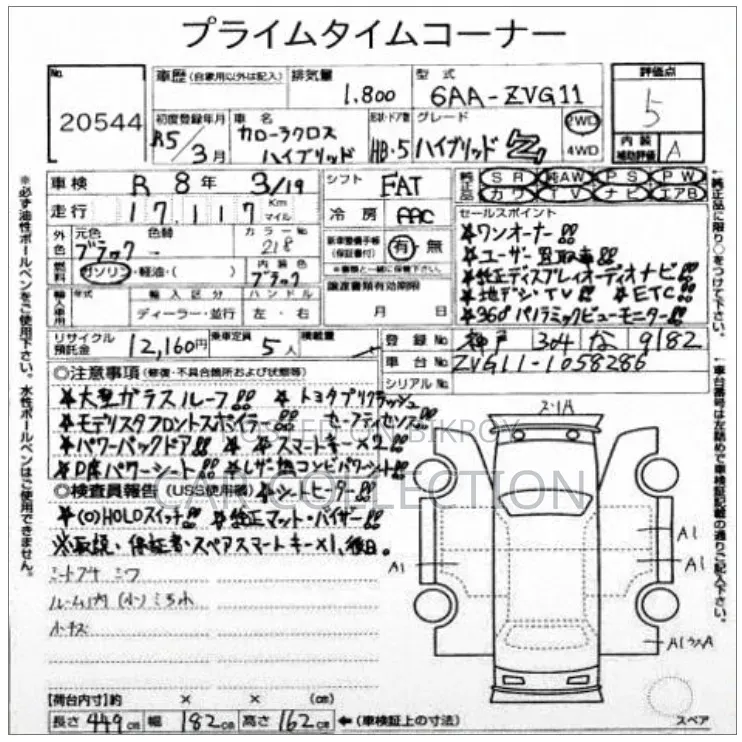 プライムタイムコーナー
No. 20544
車歴 (自家用以外は記入)
排気量 1.800
型式 6AA-ZVG11
評価点 5
内装補助評価 A
初度登録年月 R5/3月
車名 カローラクロス ハイブリッド
形状・ドア数 HB・5
グレード ハイブリッド Z
2WD 4WD
車検 R 8年 3/19
シフト FAT
純正品 SR 純AW PS PW
カワ TV ナビ エアB
走行 17.117 Km マイル
冷房 AAC
外色 元色 ブラック 色替
カラーNo 218
内装色 ブラック
燃料 ガソリン・軽油・( )
新車整備手帳 (保証書付) 有・無
※書類と一緒に保管下さい。
セールスポイント
★ワンオーナー!!
★ユーザー買取車!!
★純正ディスプレイオーディオナビ!!
★地デジTV!! ★ETC!!
★360°パノラミックビューモニター!!
輸入車用 年式 輸入区分 ディーラー・並行 ハンドル 左・右
譲渡書類有効期限 月 日
リサイクル預託金 12,160円
乗車定員 5人
積載量
登録No 神戸 304 な 9182
車台No ZVG11-1058286
シリアルNo
◎注意事項 (修復・不具合箇所および状態等)
★大型ガラスルーフ!! ★トヨタプリクラッシュ
★モデリスタフロントスポイラー!! セーフティセンス!!
★パワーバックドア!! ★スマートキー×2!!
★D席パワーシート!! ★レザー調コンビパワーシート!!
◎検査員報告 (USS使用欄) ★シートヒーター!!
★(O)HOLDスイッチ!! ★純正マット・バイザー!!
※取説・保証書・スペアスマートキー×1、後日。
シートワキ シワ
ルーム内 小シミ汚れ
小キズ
【荷台内寸】約 × × (cm)
長さ 449cm 幅 182cm 高さ 162cm ←(車検証上の寸法)
スペア
A1
A1
A1
※必ず油性ボールペンをご使用下さい。水性ボールペンはご使用できません。
↑純正品に限り○をつけて下さい。
↑車台番号は左詰めで車検証記載の通りご記入下さい。
POSTED ON BIKROY
CAR COLLECTION